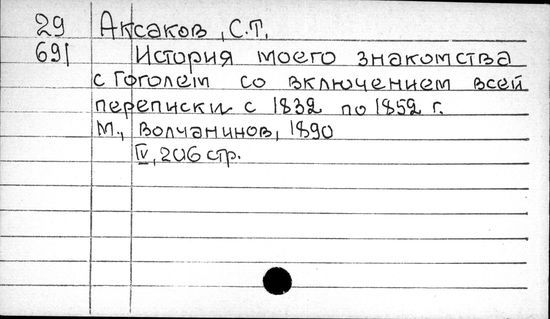 29 Аксаков, С.Т.
691 История моего знакомства
с Гоголем со включением всей
переписки с 1832 по 1852 г.
М., Волчанинов, 1890
IV, 206 стр.